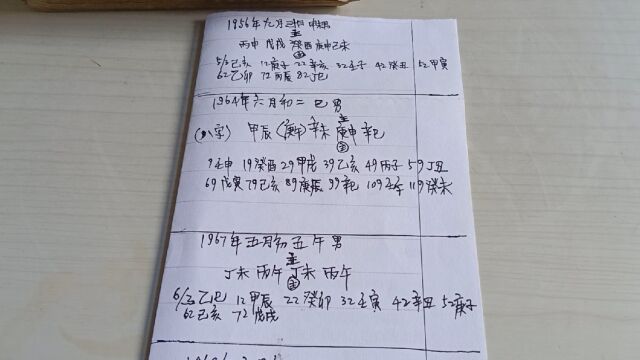 1956年九月三十日 申未男
主
丙申 戊戌 癸酉 庚申己未
金
5/3己亥 12庚子 22辛亥 32壬子 42癸丑 52甲寅
62乙卯 72丙辰 82丁巳
1964年六月初二 巳男
主
(八字) 甲辰(庚申)辛未 庚申 辛巳
金
9壬申 19癸酉 29甲戌 39乙亥 49丙子 59丁丑
69戊寅 79己亥 89庚辰 99辛巳 109壬午 119癸未
1967年五月初五午男
主
丁未 丙午 丁未 丙午
金
6/3乙巳 12甲辰 22癸卯 32壬寅 42辛丑 52庚子
62己亥 72戊戌